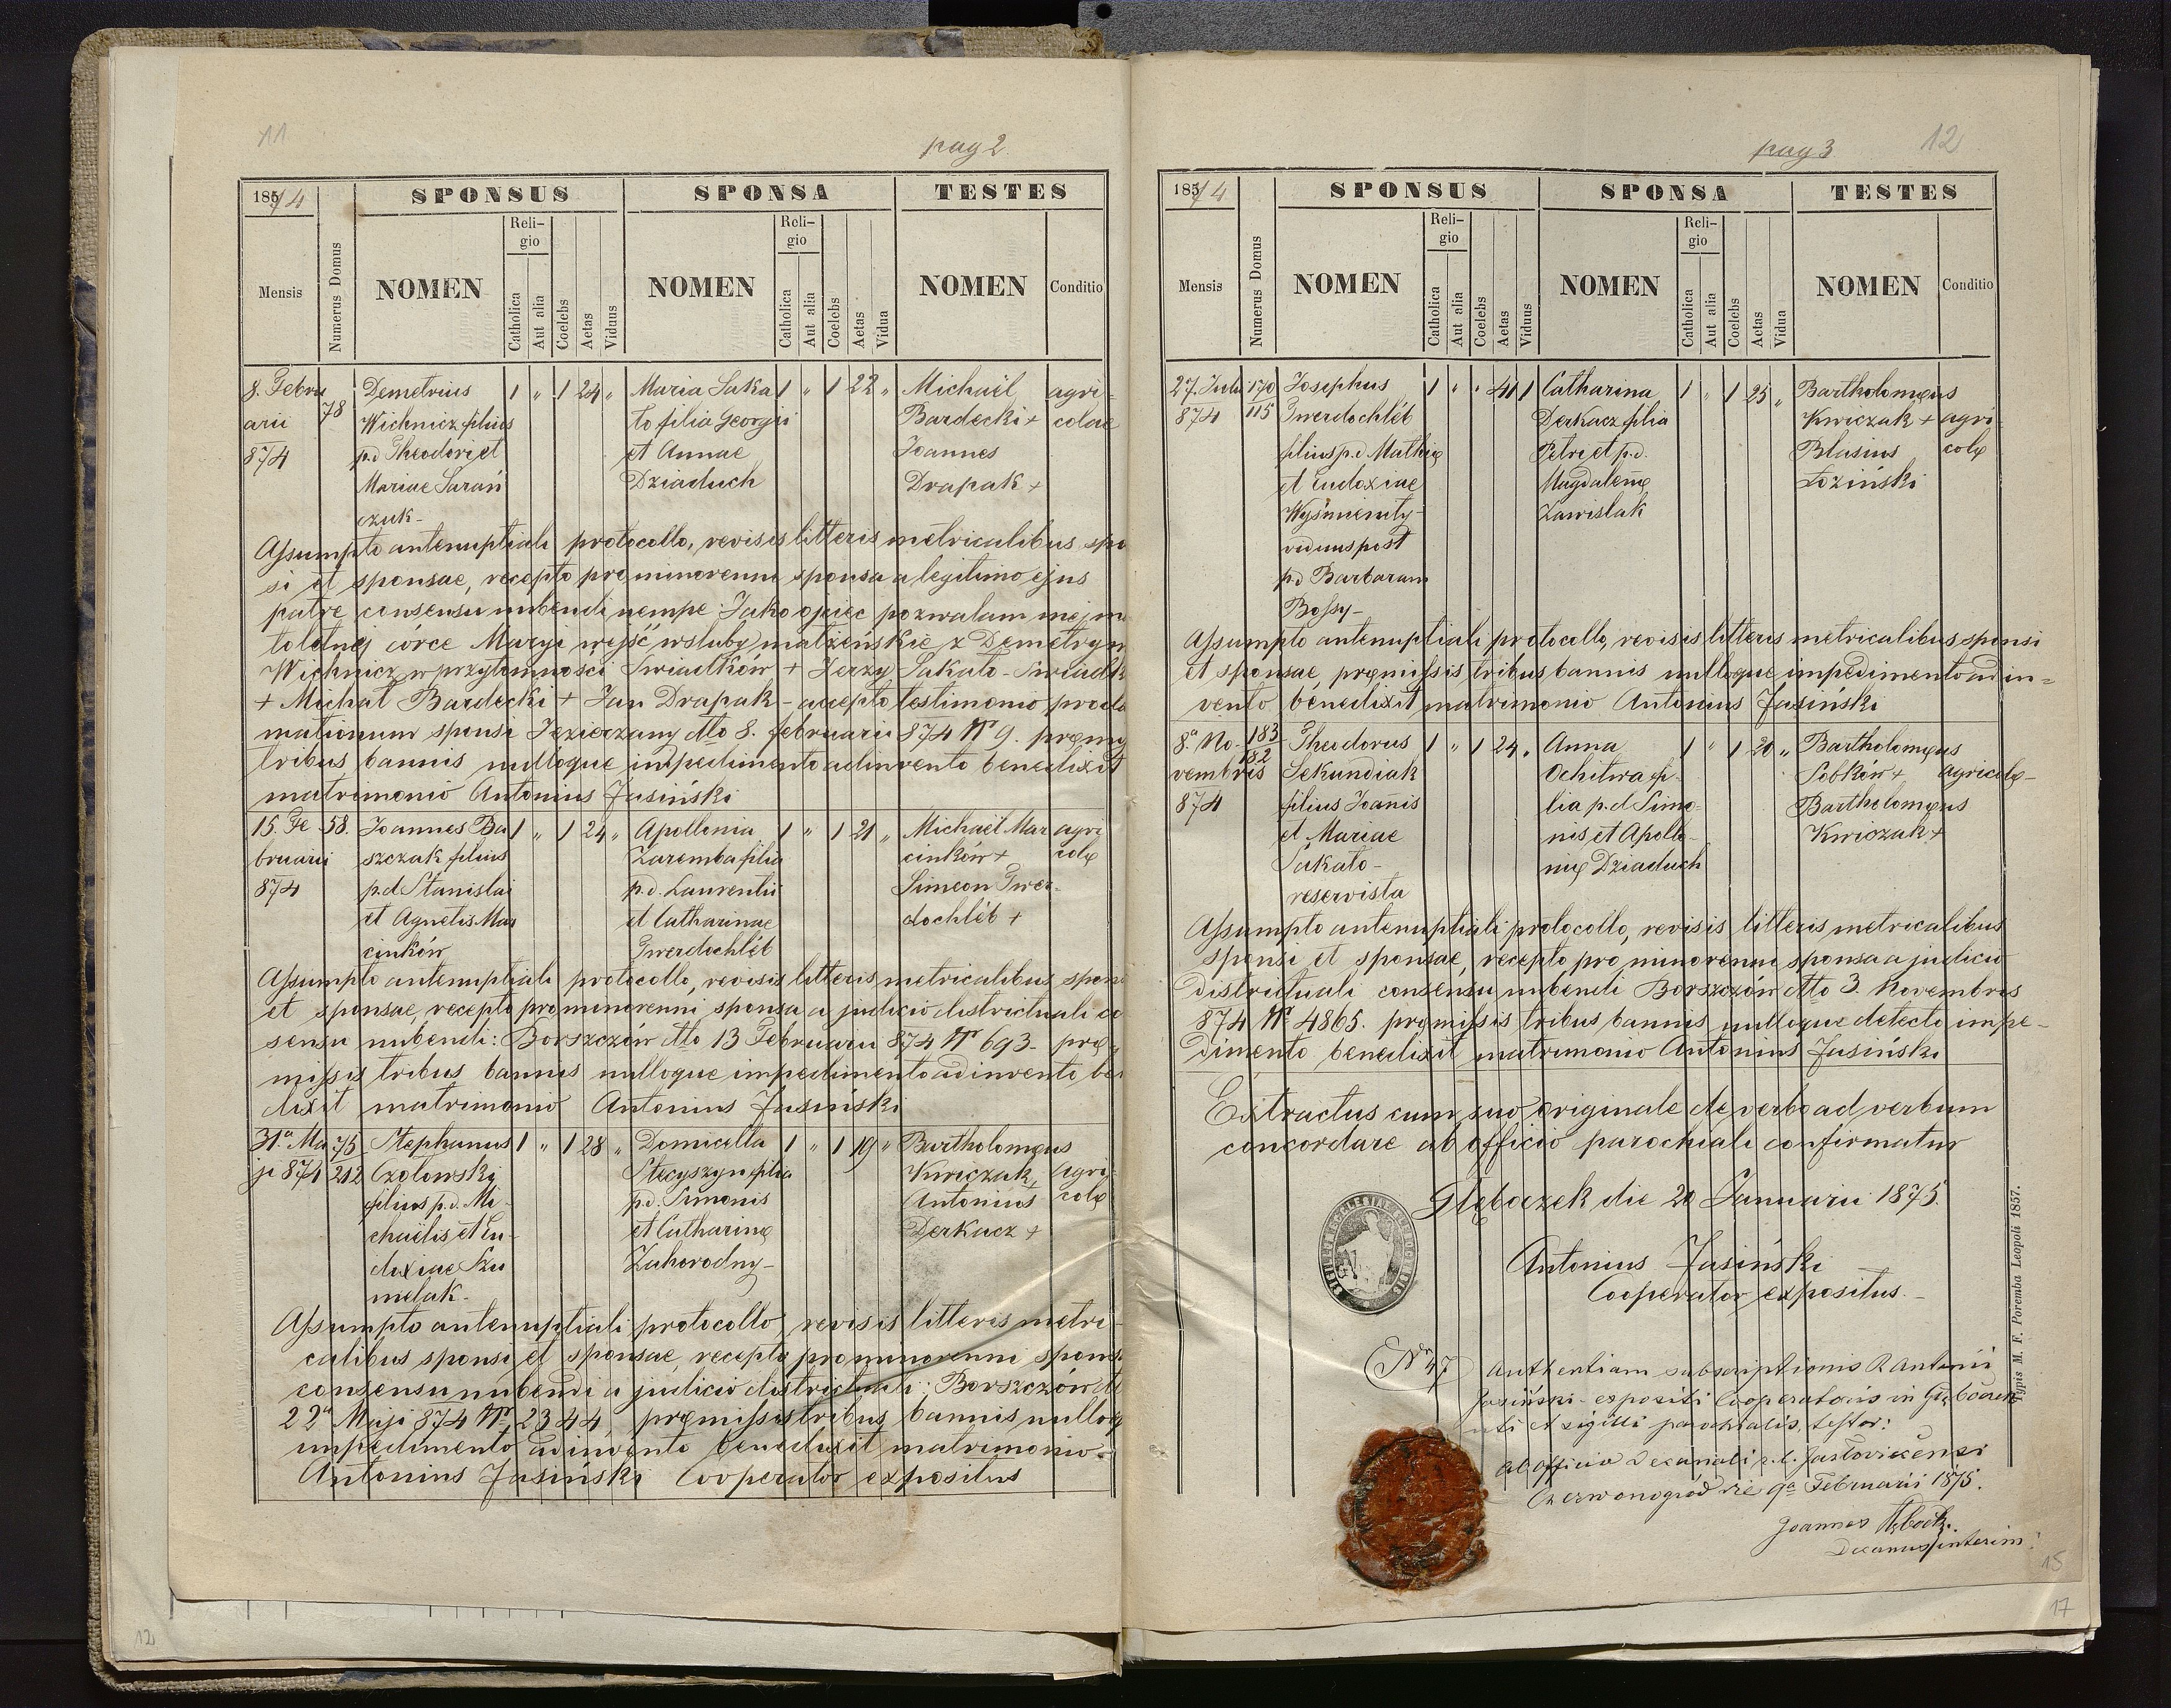 11
pag 2
1874
SPONSUS
SPONSA
TESTES
Mensis
Numerus Domus
NOMEN
Religio
Catholica
Aut alia
Coelebs
Aetas
Viduus
NOMEN
Religio
Catholica
Aut alia
Coelebs
Aetas
Vidua
NOMEN
Conditio
8. Febru 78 Demetrius 1 " 1 24 " Maria Saka 1 " 1 22 " Michaël agri-
arii Wichnicz filius to filia Georgii Bardecki + colae
874 p.d Theodori et et Annae Joannes
Mariae Sarań Dziaduch Drapak +
czuk-
Assumpto antenuptiali protocollo, revisis litteris metricalibus spon
si et sponsae, recepto pro minorenni sponsa a legitimo ejus
patre consensu nubendi nempe: Jako ojciec pozwalam mej ma
toletnej córce Maryi wejść w śluby małżeńskie z Demetrym
Wichnicz w przytomności Świadków + Jerzy Sakato - Świadk
+ Michał Bardecki + Jan Drapak - accepto testimonio procla
mationum sponsi Jezierzany dto 8. februarii 874 Nr 9. præmis
tribus bannis nulloque impedimento adinvento benedixit
matrimonio Antonius Jasiński
15. Fe 58. Joannes Ba 1 " 1 24 " Apollonia 1 " 1 21 " Michaël Mar agri
bruarii szczak filius Zaremba filia cinków + colæ
874 p.d Stanislai p.d. Laurentii Simeon Twer-
et Agnetis Mar et Catharinae dochléb +
cinków Twerdochléb
Assumpto antenuptiali protocollo, revisis litteris metricalibus spons
et sponsae, recepto pro minorenni sponsa a judicio districtuali co
sensu nubendi: Borszczów dto 13 Februarii 874 Nr 693 - præ
missis tribus bannis nulloque impedimento adinvento be
dixit matrimonio Antonius Jasiński
31ª Ma 75 Stephanus 1 " 1 28 " Domicella 1 " 1 19 " Bartholomæus
ji 874 212 Czolowski Stecyszyn filia Kwiczak, agri
filius p.d. Mi- p.d. Simonis Antonius colæ
chaëlis et Eu- et Catharinæ Derkacz +
doxiae Szu Zahorodny-
melak-
Assumpto antenuptiali protocollo, revisis litteris metri-
calibus sponsi et sponsae, recepto pro minorenni spons
consensu nubendi a judicio districtuali: Borszczów dt
22ª Maji 874 Nr 2344, præmissis tribus bannis nulloq
impedimento adinvento benedixit matrimonio-
Antonius Jasiński Cooperator expositus
12
pag 3
12
1874
SPONSUS
SPONSA
TESTES
Mensis
Numerus Domus
NOMEN
Religio
Catholica
Aut alia
Coelebs
Aetas
Viduus
NOMEN
Religio
Catholica
Aut alia
Coelebs
Aetas
Vidua
NOMEN
Conditio
27. Julii 170 Josephus 1 " " 41 1 Catharina 1 " 1 25 " Bartholomæus
874 115 Twerdochléb Derkacz filia Kwiczak + agri-
filius p.d Mathiæ Petri et p.d. Blasius colæ
et Eudoxiae Magdalenæ Łoziński
Wyśmienity- Zawislak
viduus post
p.d Barbaram
Bossy-
Assumpto antenuptiali protocollo, revisis litteris metricalibus sponsi
et sponsae, præmissis tribus bannis nulloque impedimento adin=
vento benedixit matrimonio Antonius Jasiński
8ª No- 183 Theodorus 1 " 1 24 " Anna 1 " 1 20 " Bartholomæus
vembris 152 Sekundiak Ochitwa fi- Sobków + agricolæ-
874 filius Joannis lia p.d Simo- Bartholomæus
et Mariae nis et Apollo- Kwiczak +
Sakato- niæ Dziaduch
reservista
Assumpto antenuptiali protocollo, revisis litteris metricalibus
sponsi et sponsae, recepto pro minorenni sponsa a judicio
districtuali consensu nubendi Borszczów dto 3. Novembris
874 Nr 4865. præmissis tribus bannis nulloque detecto impe-
dimento benedixit matrimonio Antonius Jasiński
Extractus cum suo originale de verbo ad verbum
concordare ab officio parochiali confirmatur
Głęboczek die 20 Januarii 1875.
Antonius Jasiński
Cooperator expositus.-
Nr 47
Authentiam subscriptionis R. Antonii
Jasiński expositi Cooperatoris in Głęboczek
uti et sigilli parochialis, testor:
Ab Officio Decanali r. l. Jazlovicensi
Czerwonogród die 9ª Februarii 1875.
Joannes
Decanus interim:
Typis M. F. Poremba Leopoli 1857.
15
17